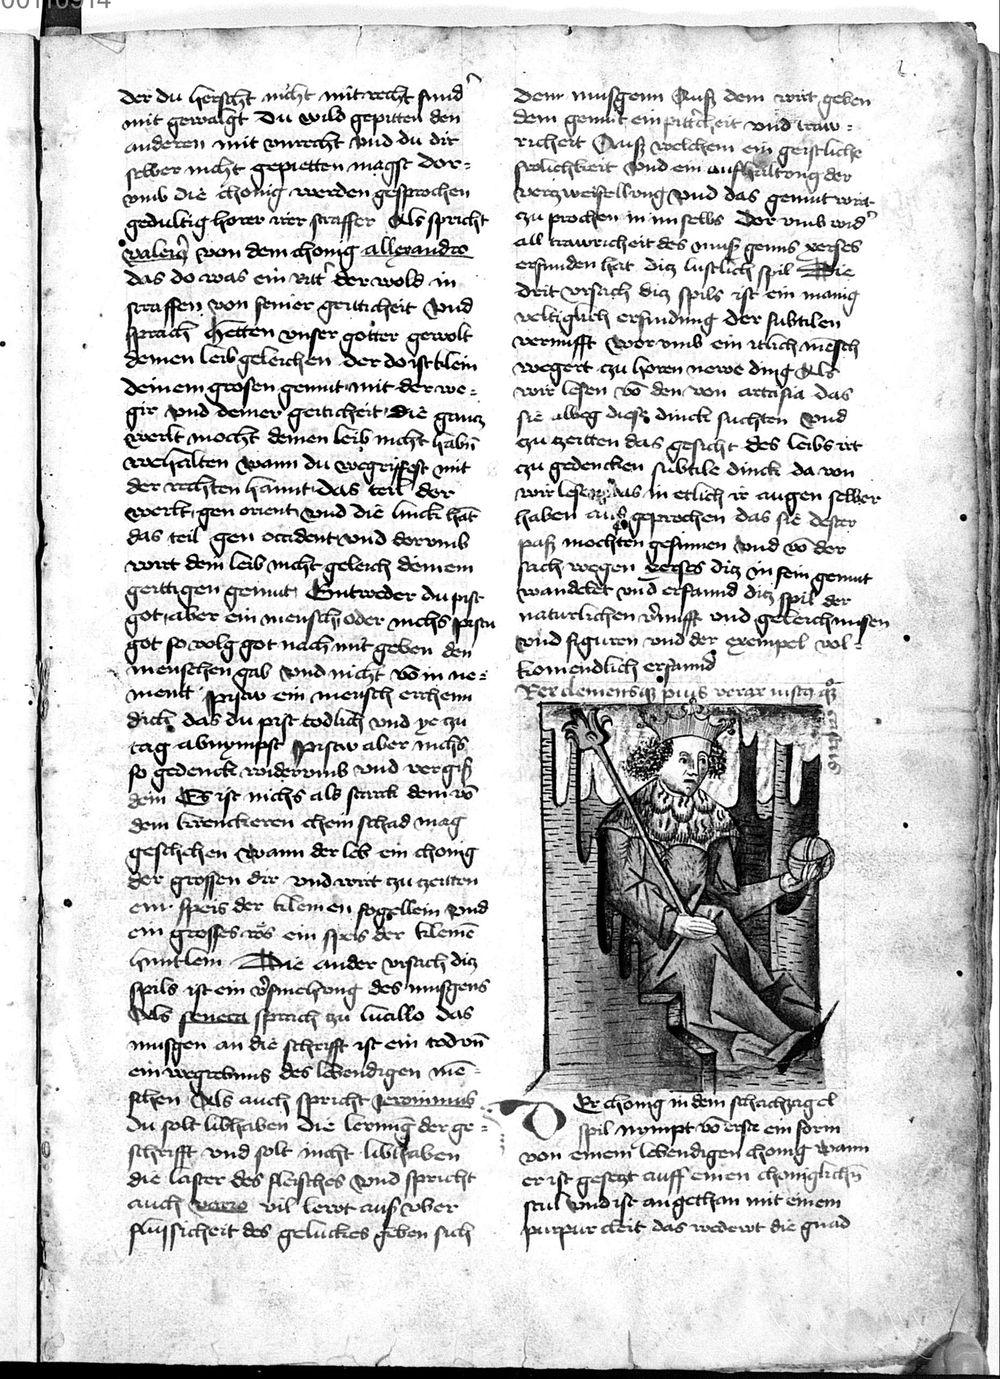 der du herscht nicht mit recht sund'
mit gewalgt Du wild gepitten den
anderen mit vnrecht vnd du dir
selber nicht gepietten magst dor=
vmb die chonig werden gesprochen
gedultig horer irer straffer Als spricht
valeri9 von dem chonig allexandro
das do was ein ritt' der wold in
straffen von seiner geitticheit vnd
sprach Hetten vnser gotter gewolt
deinen leib geleichen der do ist klein
deinem grosen gemut mit der we=
gir vnd deiner geiticheit die gancz
werlt mocht deinen leib nicht habn̄
wehalten wann du wegriffest mit
der rechten hannt das teil der
werlt gen orient vnd die linck hāt
das teil gen occident vnd dorvmb
wirt dem leib nicht geleich deinem
geittigen gemut Entweder du pist
got aber ein mensch oder nichs pistu
got so volg got nach mit geben den
menschen gab vnd nicht vō in ne=
ment pistu ein mensch erchenn
dich das du pist todlich vnd ye zu
tag abnympst pistu aber nichs
so gedenck widervmb vnd vergiß
dein Es ist nichs als starck dem vō
dem krenckeren chein schad mag
geschehen wann der leb ein chonig
der grossen dir vnd wirt zu zeitten
ein speis der kleinen fogellein vnd
ein grosses ros ein speis der kleinē
huntlein Die ander vrsach dicz
spils ist ein v'smehong des musgens
Als seneca sprach zu lucillo das
musgen an die schrifft ist ein tod vn̄
ein wegrebnus des lebendigen mē=
schen Als auch spricht Jeronimus
du solt libhaben die lernug der ge=
schrifft vnd solt nicht libhaben
die laster des fleisches vnd spricht
auch varro vil lerot aus vber
flussicheit des geluckes geben sich
dem musgenn Auß dem wirt geben
dem gemut ein pittr'cheit vnd traw=
richeit Auß welchem ein geistliche
frolichkeit vnd ein aufhaltong der
verzweifellong vnd das gemut wirt
zu prochen in im selbs Dor vmb wid'
all trawricheit des musgenns xerses
erfunden hat dicz lustlich spil Die
drit vrsach dicz spils ist ein manig
veltiglich erfindung der subtilen
vernufft Wor vmb ein itlich mēsch
wegert zu horen newe ding Als
wir lesen vō den von
sie alweg diese dinck suchten vnd
zu zeitten das gesicht des leibs irt
zu gedencken subtile dinck da von
wir lesen das in etlich ir augen selber
haben aus geprochen das sie dester
paß mochten gesinnen vnd vō der
sach wegen xerses dicz in sein gemut
wandelet vnd erfannd dicz spil der
naturlichen v'nufft vnd geleichnusen
vnd figuren vnd der exempel vol=
komendlich erfannd
Rex clemensq3 pius verax iustusq3
Er chonig in dem schachzagel
spil nympt vō erst ein form
von einem lebendigen chonig wann
er ist gesetzt auff einen choniglichn̄
stul vnd ist angethan mit einem
purpur cleit das wedewt die gnad